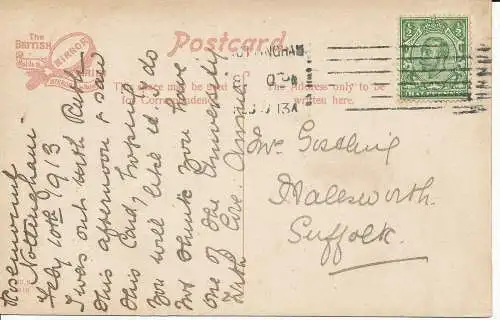 The
BRITISH
MIRROR
SERIES
Postcard
This Space may be used
for Correspondence
The Address only to be
written here.
NOTTINGHAM
13A
Rosemount
Nottingham
July 10th 1913
I was out with Ruth
this afternoon & saw
this Card, hoping
you will like it. do
not think you have
one of the University
With Love. Annie
Mr Gostling
Halesworth.
Suffolk.